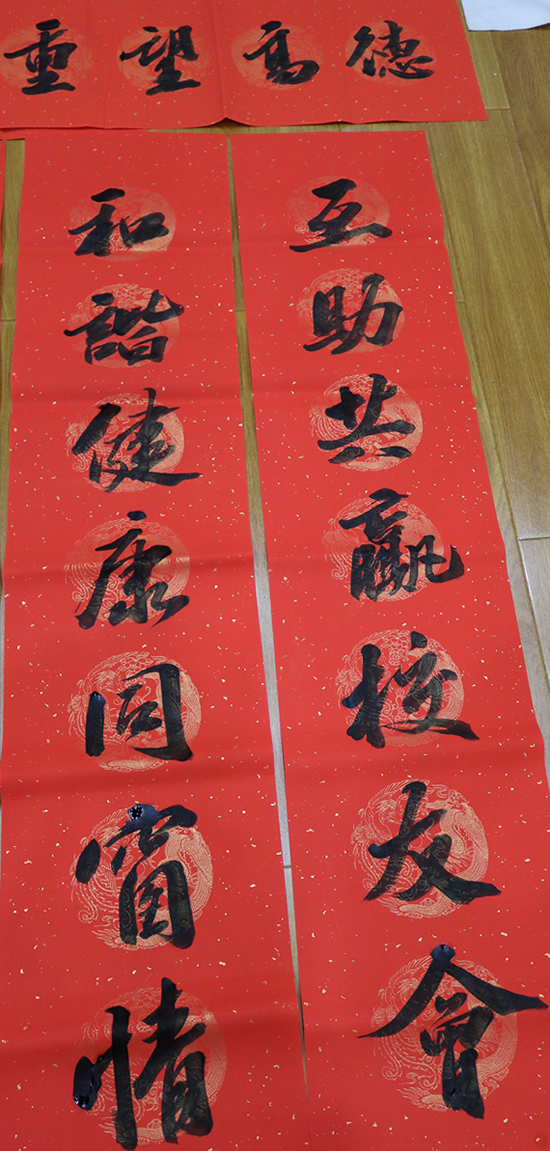 德高望重
互助共贏校友會
和諧健康同窗情